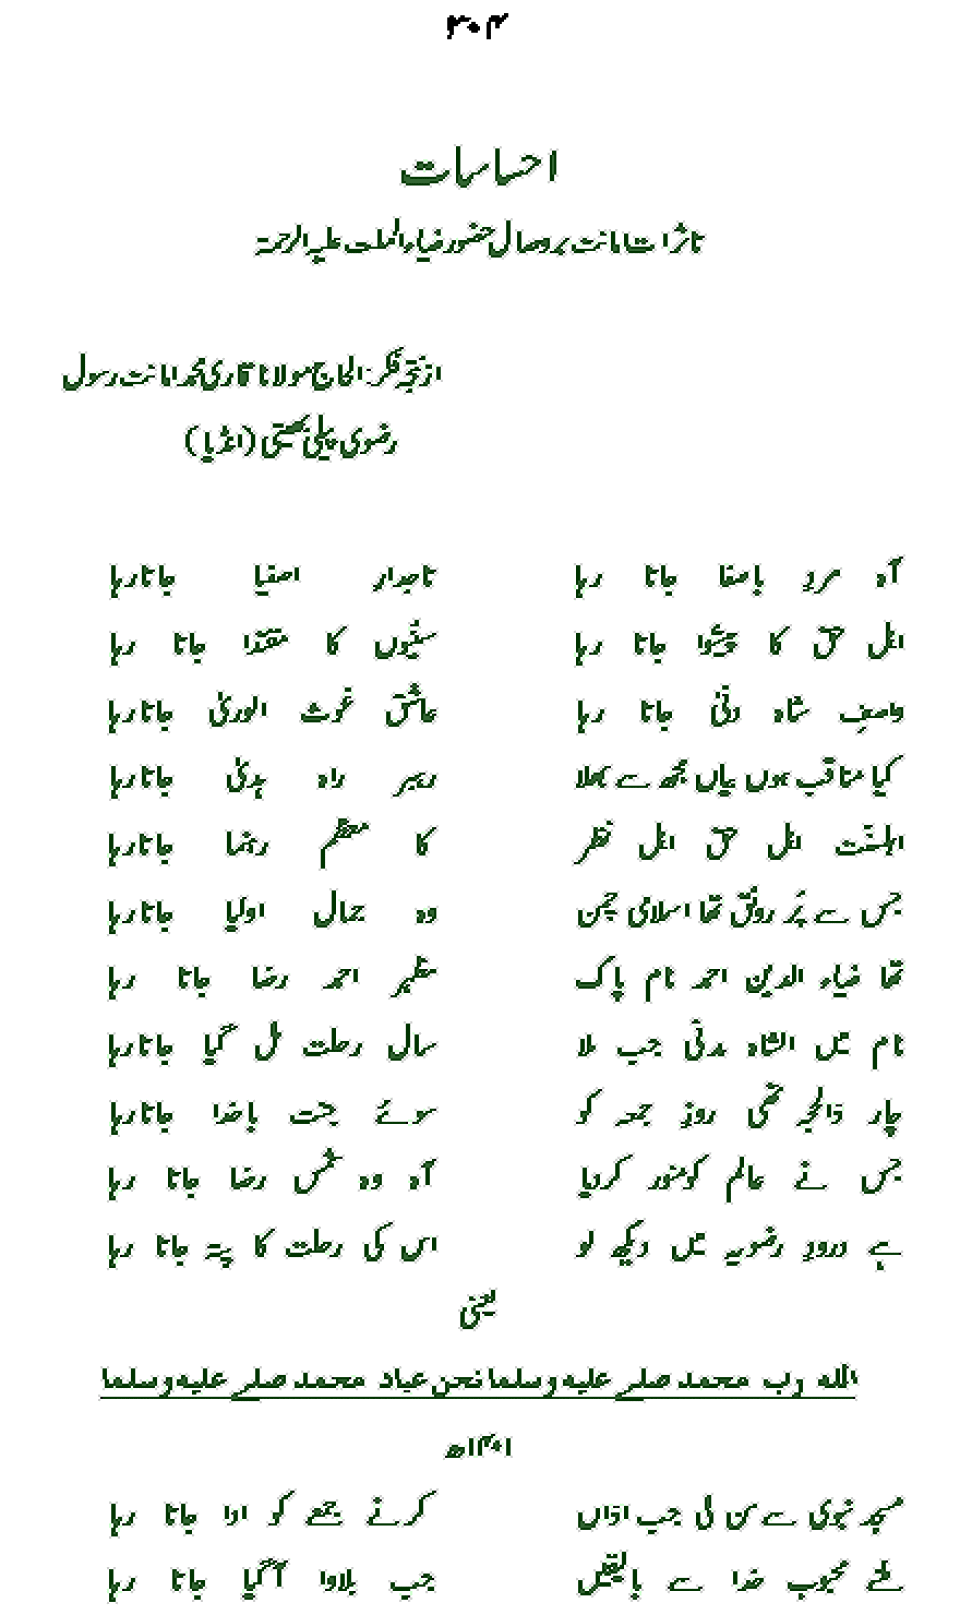 ۳۰۴
احساسات
تاثرات امانت بر وصال حضور ضیاء الملت علیہ الرحمۃ
از نتیجہ فکر: الحاج مولانا قاری محمد امانت رسول
رضوی پیلی بھیتی (انڈیا)
آہ مردِ باصفا جاتا رہا تاجدارِ اصفیا جاتا رہا
اہل حق کا پیشوا جاتا رہا سنیوں کا مقتدا جاتا رہا
واصفِ شاہ دنیٰ جاتا رہا عاشق غوث الوریٰ جاتا رہا
کیا مناقب ہوں بیاں مجھ سے بھلا رہبر راہ ہدیٰ جاتا رہا
اہلسنّت اہل حق اہل نظر کا معظم رہنما جاتا رہا
جس سے پُر رونق تھا اسلامی چمن وہ جمال اولیا جاتا رہا
تھا ضیاء الدین احمد نام پاک مظہر احمد رضا جاتا رہا
نام میں الشاہ مدنی جب ملا سال رحلت مل گیا جاتا رہا
چار ذالحجہ تھی روزِ جمعہ کو سوئے جنت باخدا جاتا رہا
جس نے عالم کو منور کردیا آہ وہ شمس رضا جاتا رہا
ہے درودِ رضویہ میں دیکھ لو اس کی رحلت کا پتہ جاتا رہا
یعنی
اللہ رب محمد صلے علیہ وسلما نحن عباد محمد صلے علیہ وسلما
۱۴۰۱ھ
مسجد نبوی سے سن لی جب اذاں کرنے جمعے کو ادا جاتا رہا
ملنے محبوب خدا سے بالیقیں جب بلاوا آگیا جاتا رہا